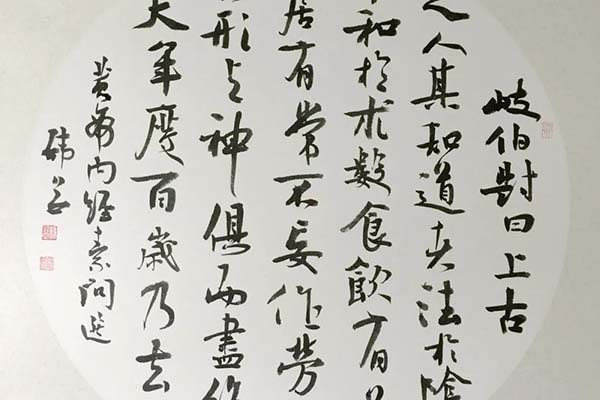 岐伯對曰上古
之人其知道者法於陰
和於术數食飲有
居有常不妄作勞
形与神俱而盡終
天年度百歲乃去
黃帝內經素問選